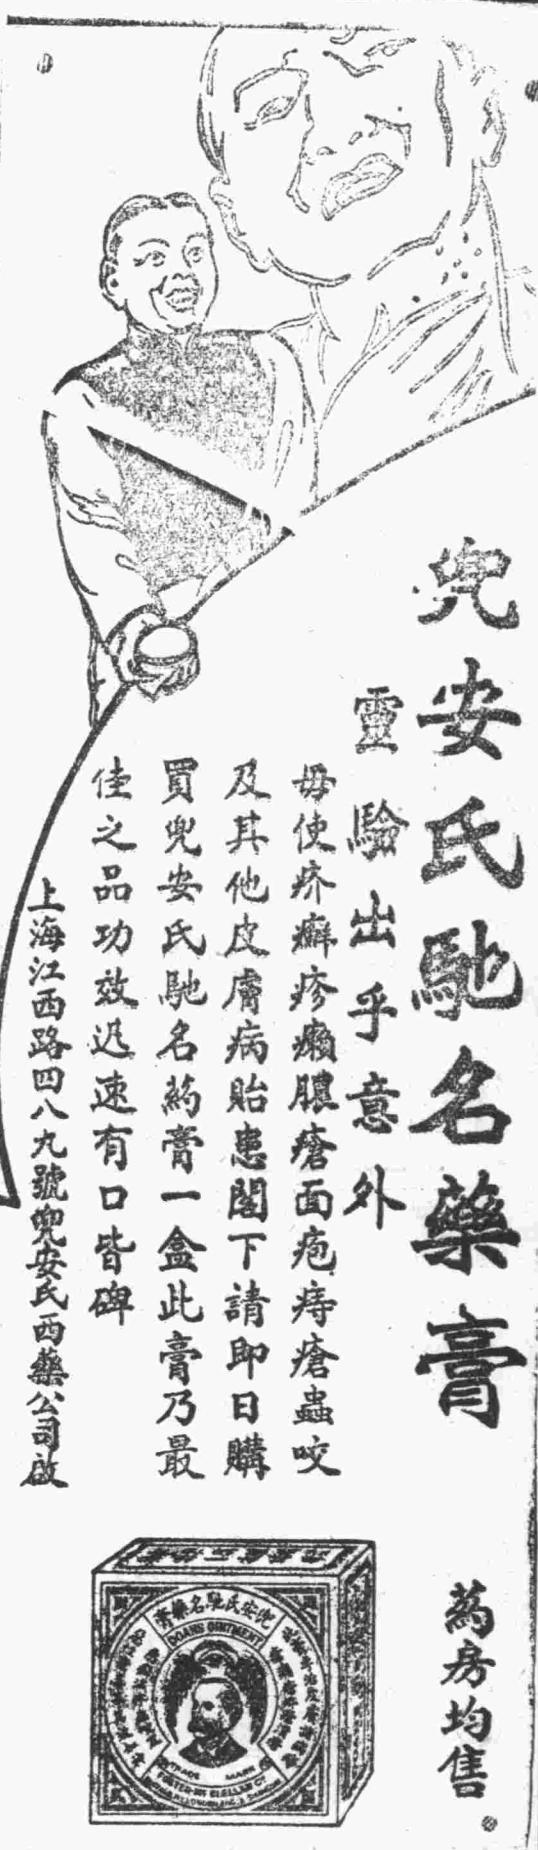 兜安氏馳名藥膏
靈驗出乎意外
毋使疥癬疹癩膿瘡面疱痔瘡蟲咬
及其他皮膚病貽患閣下請即日購
買兜安氏馳名葯膏一盒此膏乃最
佳之品功效迅速有口皆碑
上海江西路四八九號兜安氏西藥公司啟
葯房均售
兜安氏馳名藥膏
DOANS OINTMENT
TRADE MARK
FOSTER-McCLELLAN CO